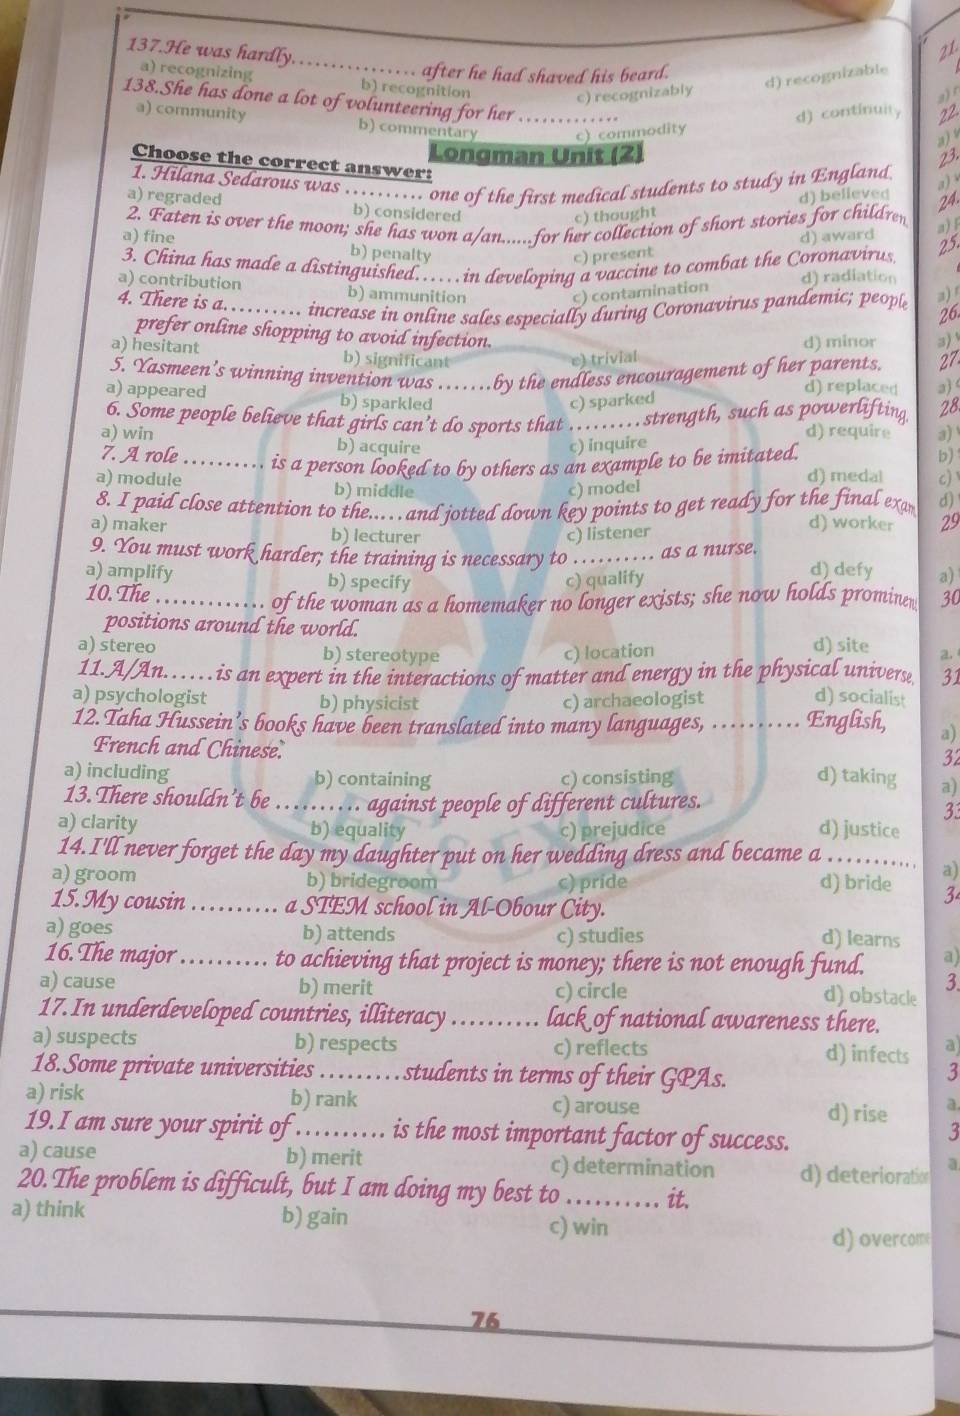 137.He was hardly................ after he had shaved his beard.
a) recognizing b) recognition c) recognizably d) recognizable
138.She has done a lot of volunteering for her .............
a) community b) commentary c) commodity d) continuity
Longman Unit (2)
Choose the correct answer:
1. Hilana Sedarous was .......... one of the first medical students to study in England.
a) regraded b) considered c) thought d) believed
2. Faten is over the moon; she has won a/an......for her collection of short stories for children.
a) fine b) penalty c) present d) award
3. China has made a distinguished......in developing a vaccine to combat the Coronavirus.
a) contribution b) ammunition c) contamination d) radiation
4. There is a.......... increase in online sales especially during Coronavirus pandemic; people
prefer online shopping to avoid infection.
a) hesitant b) significant c) trivial d) minor
5. Yasmeen's winning invention was .......by the endless encouragement of her parents.
a) appeared b) sparkled c) sparked d) replaced
6. Some people believe that girls can't do sports that .........strength, such as powerlifting.
a) win b) acquire c) inquire d) require
7. A role .......... is a person looked to by others as an example to be imitated.
a) module b) middle c) model d) medal
8. I paid close attention to the.....and jotted down key points to get ready for the final exam
a) maker b) lecturer c) listener d) worker
9. You must work harder; the training is necessary to .......... as a nurse.
a) amplify b) specify c) qualify d) defy
10. The ............. of the woman as a homemaker no longer exists; she now holds prominen
positions around the world.
a) stereo b) stereotype c) location d) site
11.A/An......is an expert in the interactions of matter and energy in the physical universe.
a) psychologist b) physicist c) archaeologist d) socialist
12. Taha Hussein's books have been translated into many languages, .......... English,
French and Chinese.
a) including b) containing c) consisting d) taking
13. There shouldn't be .......... against people of different cultures.
a) clarity b) equality c) prejudice d) justice
14. I'll never forget the day my daughter put on her wedding dress and became a ..........
a) groom b) bridegroom c) pride d) bride
15. My cousin .......... a STEM school in Al-Obour City.
a) goes b) attends c) studies d) learns
16. The major .......... to achieving that project is money; there is not enough fund.
a) cause b) merit c) circle d) obstacle
17. In underdeveloped countries, illiteracy .......... lack of national awareness there.
a) suspects b) respects c) reflects d) infects
18. Some private universities .........students in terms of their GPAs.
a) risk b) rank c) arouse d) rise
19. I am sure your spirit of .......... is the most important factor of success.
a) cause b) merit c) determination d) deterioration
20. The problem is difficult, but I am doing my best to .......... it.
a) think b) gain c) win d) overcome
76